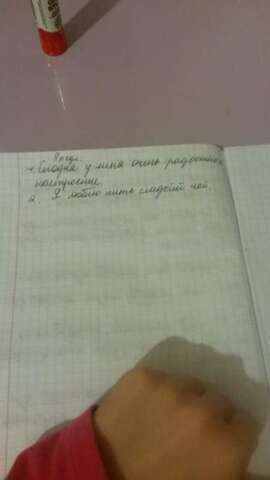 1. Сегодня у меня очень радостное
настроение.
2. Я люблю пить сладкий чай